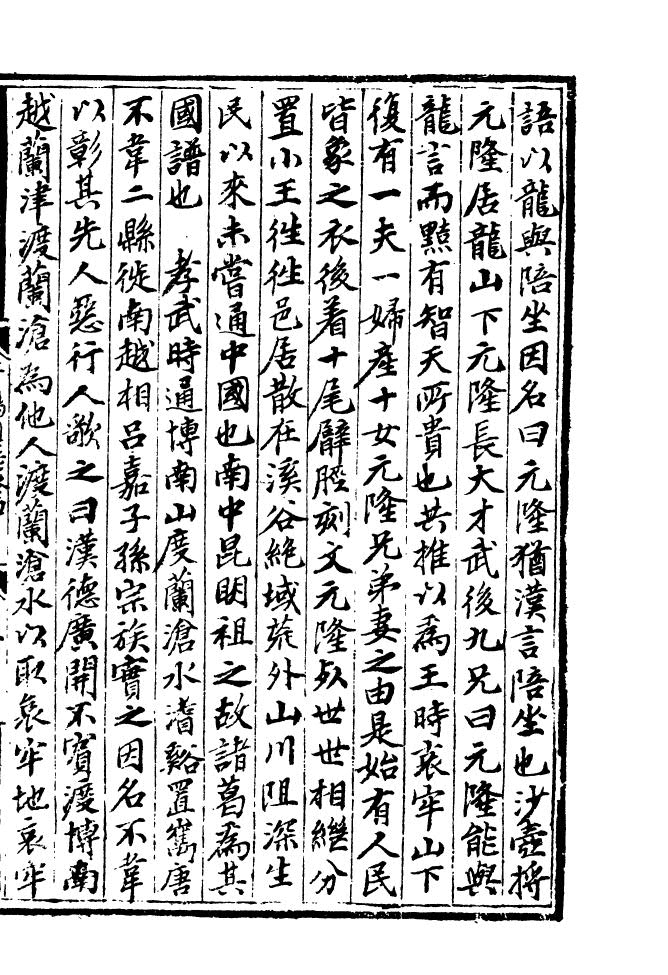 語以龍與陪坐因名曰元隆猶漢言陪坐也沙壺將
元隆居龍山下元隆長大才武後九兄曰元隆能與
龍言而黠有智天所貴也共推以爲王時哀牢山下
復有一夫一婦產十女元隆兄弟妻之由是始有人民
皆象之衣後着十尾臂脛刻文元隆死世世相繼分
置小王往往邑居散在溪谷絶域荒外山川阻深生
民以來未嘗通中國也南中昆明祖之故諸葛爲其
國譜也 孝武時通博南山度蘭滄水渽谿置嶲唐
不韋二縣徙南越相呂嘉子孫宗族實之因名不韋
以彰其先人惡行人歌之曰漢德廣開不賓渡博南
越蘭津渡蘭滄為他人渡蘭滄水以取哀牢地哀牢